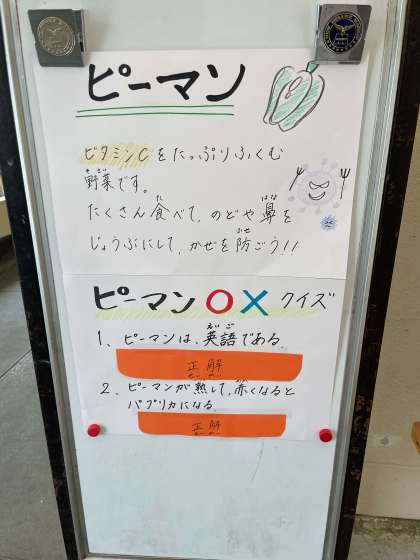 ピーマン
ビタミンCをたっぷりふくむ
野菜です。
たくさん食べて、のどや鼻を
じょうぶにして、かぜを防ごう!!
ピーマン○×クイズ
1、ピーマンは、英語である。
正解
2、ピーマンが熟して、赤くなると
パプリカになる。
正解